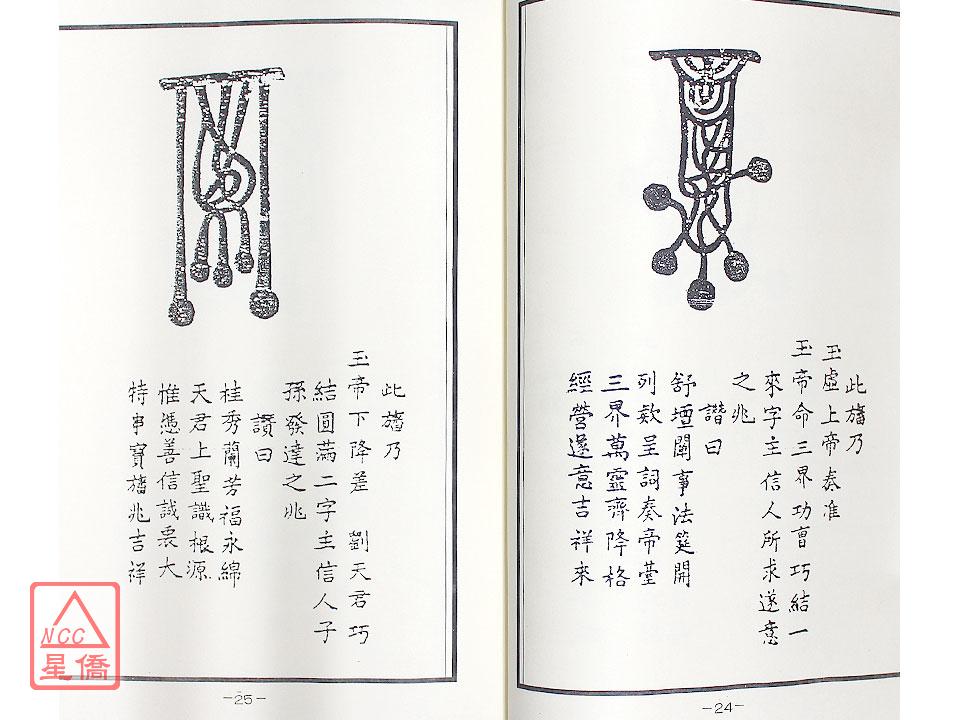 此旛乃
玉虛上帝奏准
玉帝命三界功曹巧結一
來字主信人所求遂意
之兆
讚曰
舒壇闡事法筵開
列欵呈詞奏帝臺
三界萬靈齊降格
經營遂意吉祥來
-24-
此旛乃
玉帝下降差 劉天君巧
結圓滿二字主信人子
孫發達之兆
讚曰
桂秀蘭芳福永綿
天君上聖識根源
惟憑善信誠裏大
特串寶旛兆吉祥
-25-
NCC
星僑